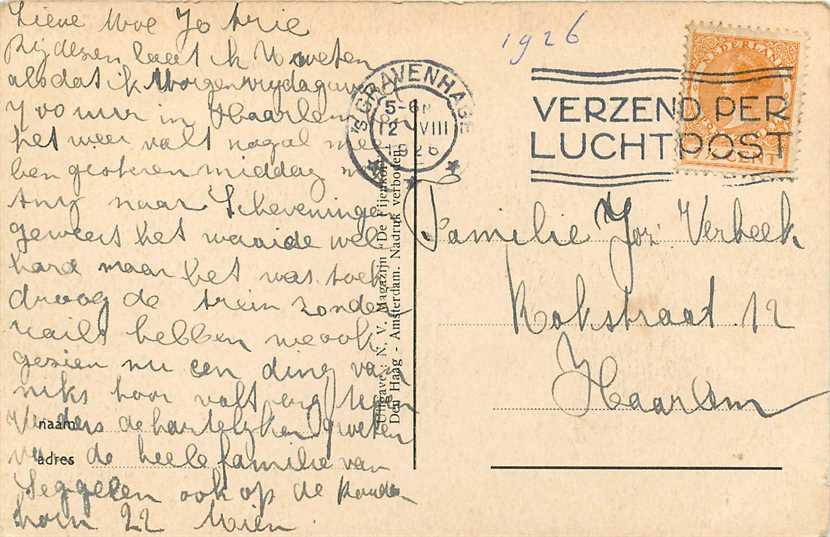 Lieve Moe Jo Arie
Bijdezen laat ik U weten
alsdat ik Morgen vrydag
uur in Haarlem
het weer valt nogal mee
ben gisteren middag
naar Scheveninge
geweest het waaide wel
hard maar het was toch
droog de trein zonder
rails hebben we ook
gezien nu een ding van
niks hoor valt erg tegen
Verders de hartelijken groeten
van de heele familie van
Seggelen ook op de
horn 22 Mien.
naam
adres
1926
'S GRAVENHAGE
5-6 N
12 VIII
1926
VERZEND PER
LUCHTPOST
NEDERLAND
CENT
Uitgave: N. V. Magazijn "De Bijenkorf"
Den Haag - Amsterdam. Nadruk verboden.
Familie Joz Verbeek
Kokstraat 12
Haarlem